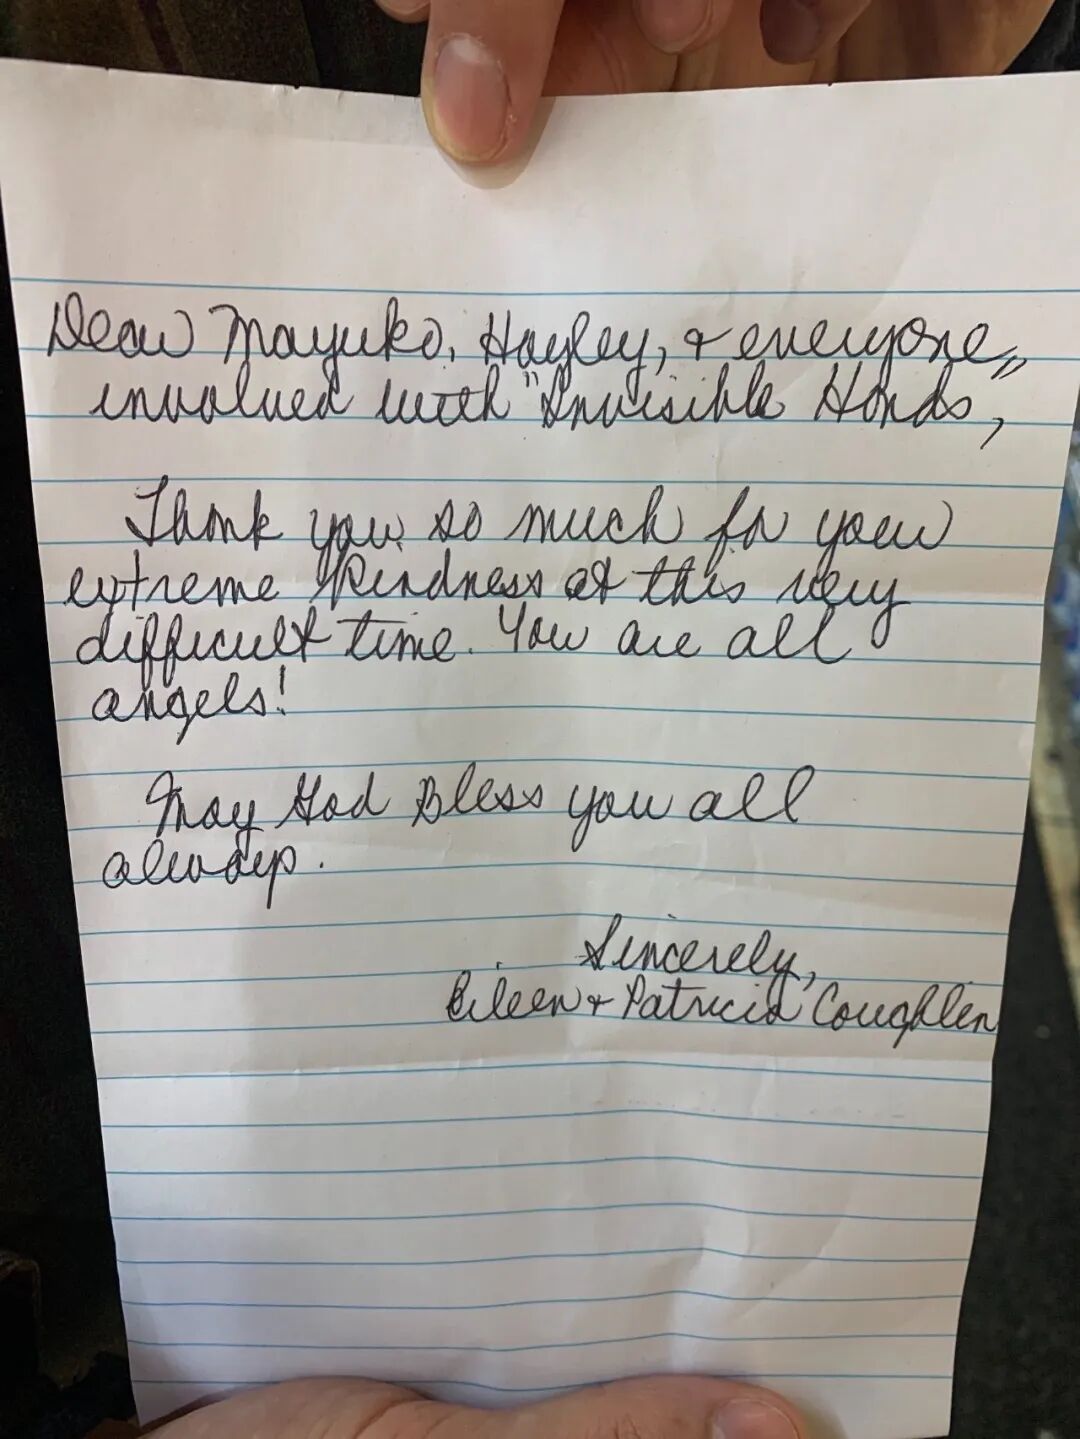 Dear Mayuko, Hayley, & everyone
involved with "Invisible Hands,"
Thank you so much for your
extreme kindness at this very
difficult time. You are all
angels!
May God Bless you all
always.
Sincerely,
Eileen & Patricia Coughlin